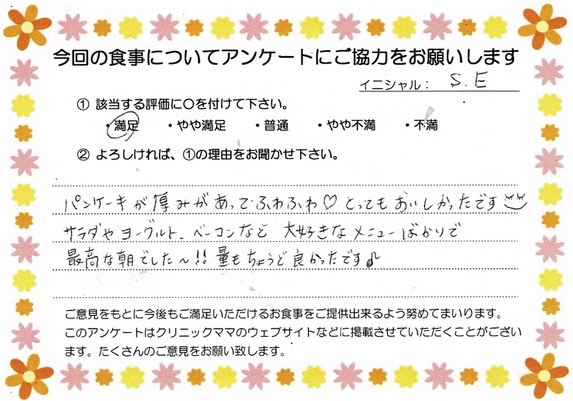 今回の食事についてアンケートにご協力をお願いします
イニシャル： S.E
① 該当する評価に〇を付けて下さい。
・満足 ・やや満足 ・普通 ・やや不満 ・不満
② よろしければ、①の理由をお聞かせ下さい。
パンケーキが厚みがあってふわふわ♡とってもおいしかったです
サラダやヨーグルト、ベーコンなど 大好きなメニューばかりで
最高な朝でした〜!! 量もちょうど良かったです♪
ご意見をもとに今後もご満足いただけるお食事をご提供出来るよう努めてまいります。
このアンケートはクリニックママのウェブサイトなどに掲載させていただくことがござい
ます。たくさんのご意見をお願い致します。